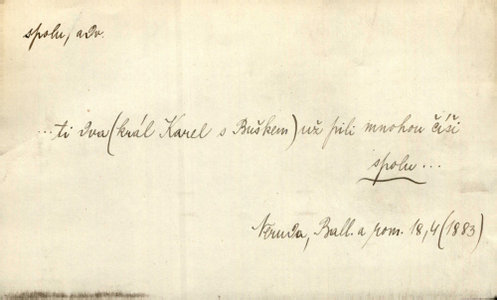 spolu, adv.
...ti dva (král Karel s Buškem) už pili mnohou číši
spolu...
Neruda, Ball. a rom. 18,4 (1883)